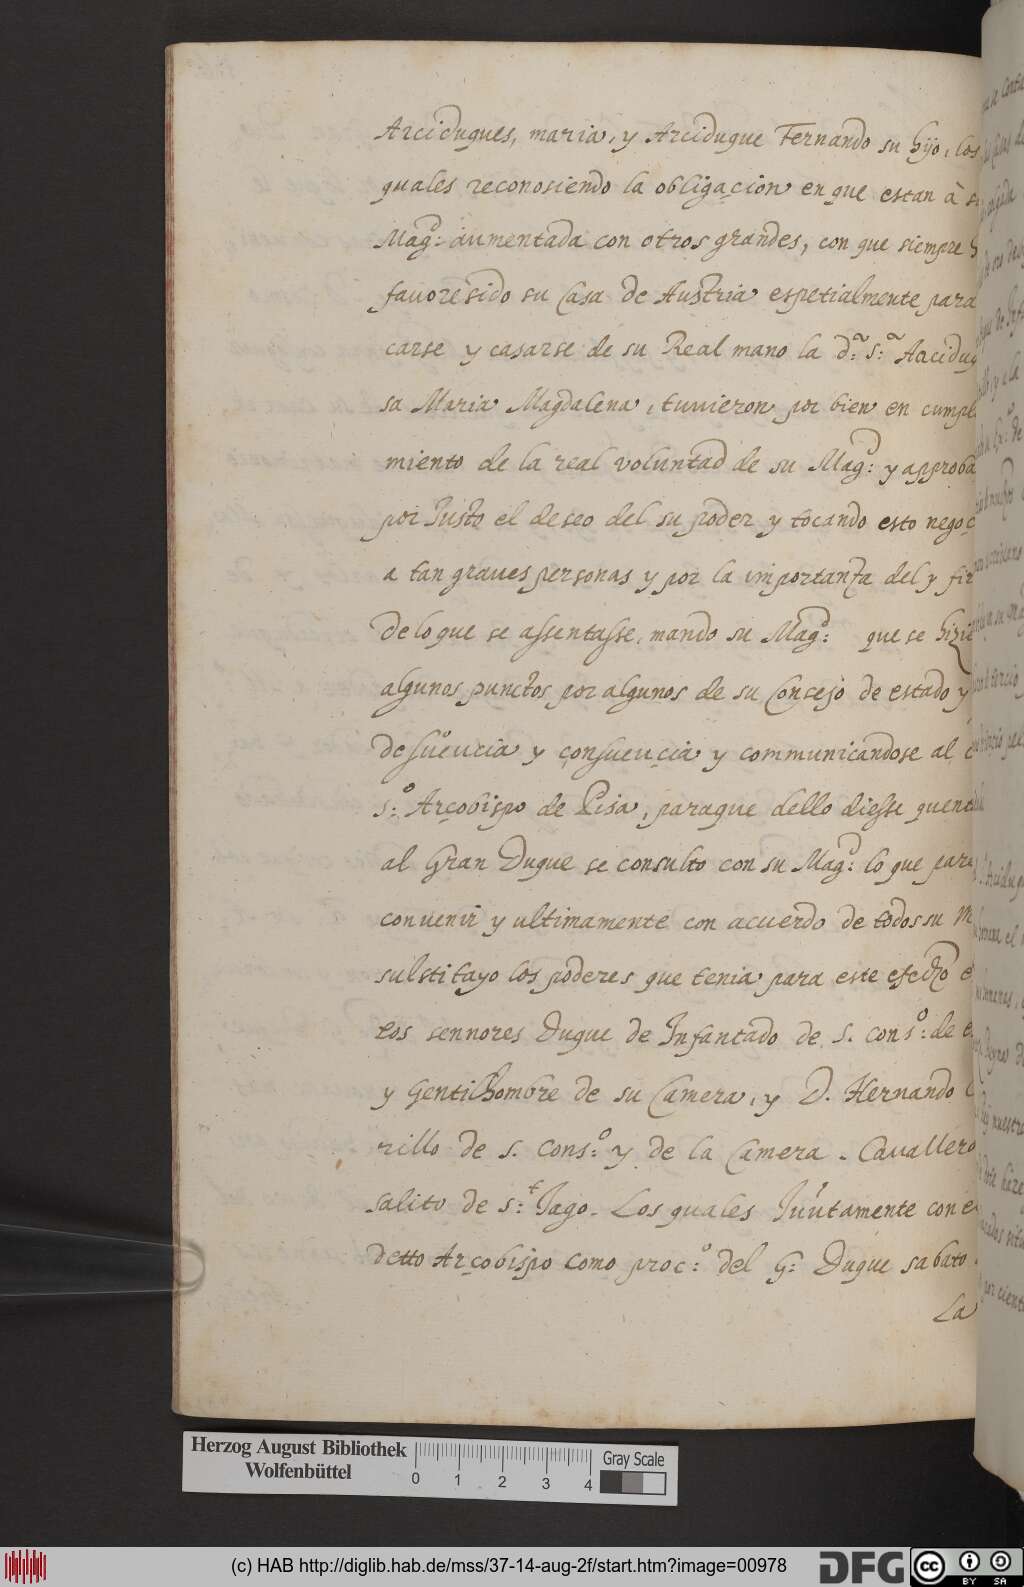 Arciduques, maria, y Arciduque Fernando su hijo, los
quales reconosiendo la obligacion en que estan à su
Magd: aumentada con otros grandes, con que siempre
favoresido su Casa de Austria espetialmente para
carse y casarse de su Real mano la d:ã s:ã Arciduq
sa Maria Magdalena, tuvieron por bien en cumpl
miento de la real voluntad de su Magd: y approba
por Justo el deseo del su poder y tocando esto negoc
a tan graves personas y por la importanza del y fir
de lo que se assentasse, mando su Magd: que se hizie
algunos punctos por algunos de su Consejo de estado y
de y communicandose al
s:o Arcobispo de Pisa, paraque dello diesse quent
al Gran Duque se consulto con su Magd: lo que para
convenir y ultimamente con acuerdo de todos su M
substituyo los poderes que tenia para este efecto e
los sennores Duque de Infantado de s. cons:o de e
y Gentilhombre de su Camera, y D. Hernando
rillo de s. Cons:o y de la Camera. Cavallero
salito de s:t Jago. Los quales Juntamente con e
detto Arcobispo como proc:o del G: Duque sabato
La
Herzog August Bibliothek
Wolfenbüttel
0 1 2 3 4
Gray Scale
(c) HAB http://diglib.hab.de/mss/37-14-aug-2f/start.htm?image=00978
DFG
cc BY SA